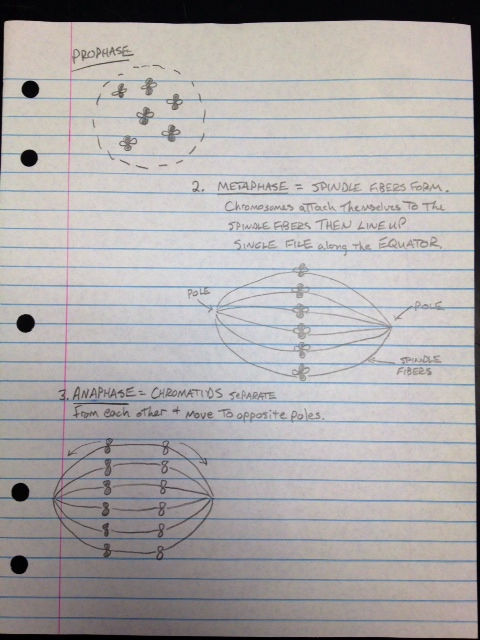 PROPHASE
2. METAPHASE = SPINDLE FIBERS FORM.
Chromosomes attach Themselves To The
SPINDLE FIBERS THEN LINE UP
SINGLE FILE along the EQUATOR
POLE
POLE
SPINDLE
FIBERS
3. ANAPHASE = CHROMATIDS SEPARATE
from each other + move To opposite poles.